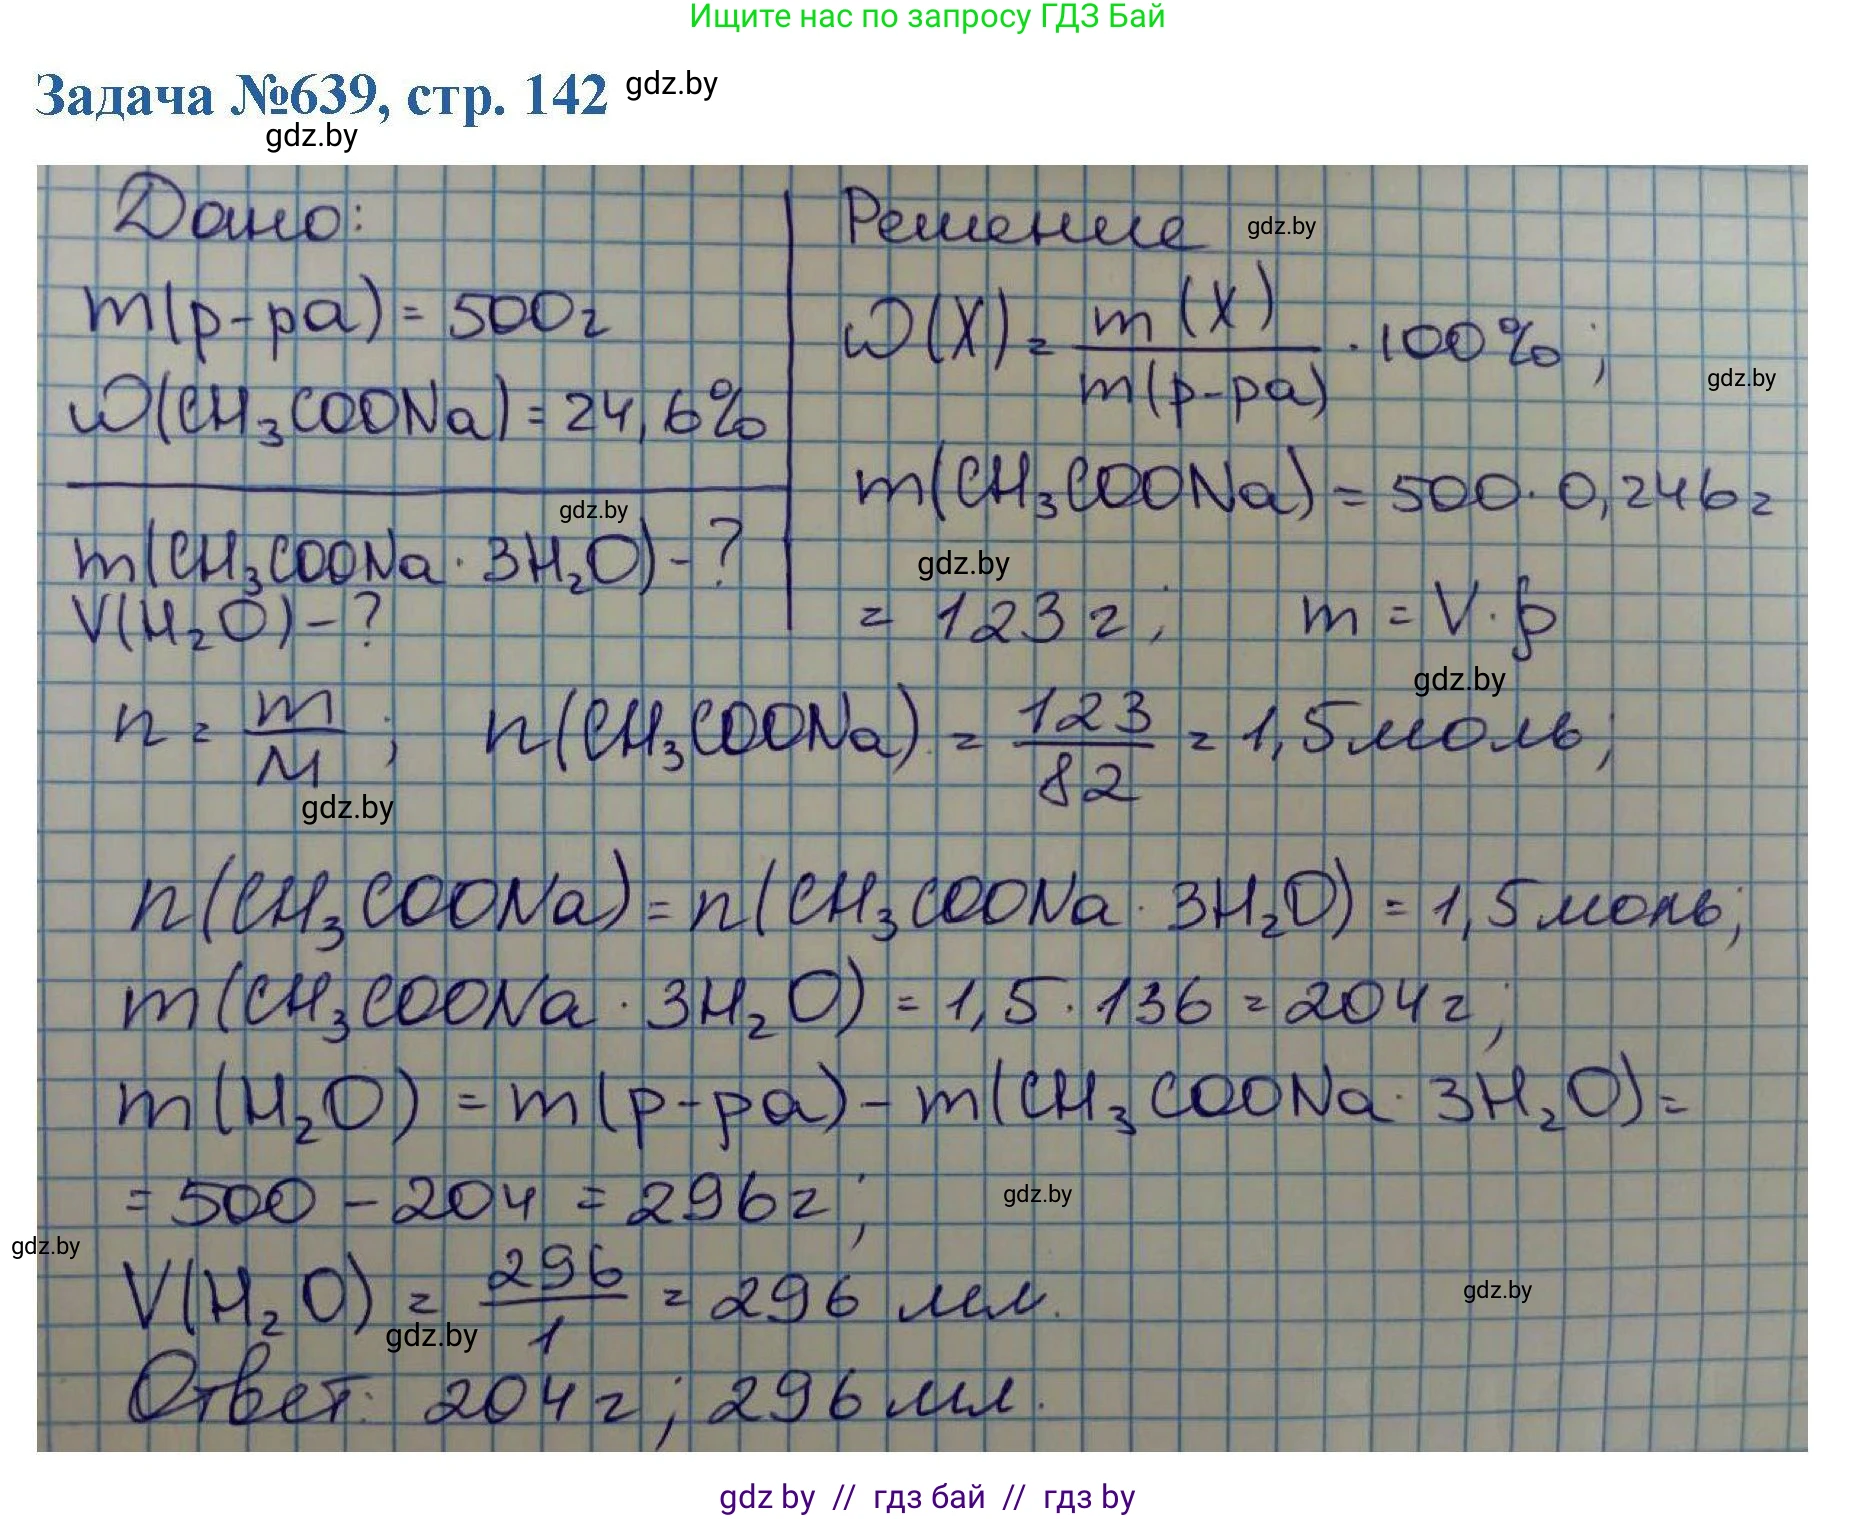 Ищите нас по запросу ГДЗ Бай
Задача №639, стр. 142
gdz.by
gdz.by
Дано:
m(р-ра) = 500г
ω(CH₃COONa) = 24,6%
gdz.by
m(CH₃COONa · 3H₂O) - ?
V(H₂O) - ?
Решение
gdz.by
ω(X) = m(X) / m(р-ра) · 100%;
gdz.by
m(CH₃COONa) = 500 · 0,246г
gdz.by
= 123г; m = V · ρ
gdz.by
n = m / M; n(CH₃COONa) = 123 / 82 = 1,5моль;
gdz.by
n(CH₃COONa) = n(CH₃COONa · 3H₂O) = 1,5моль;
m(CH₃COONa · 3H₂O) = 1,5 · 136 = 204г;
m(H₂O) = m(р-ра) - m(CH₃COONa · 3H₂O) =
= 500 - 204 = 296г;
gdz.by
gdz.by
V(H₂O) = 296 / 1 = 296 мл.
gdz.by
gdz.by
Ответ: 204г; 296мл.
gdz by // гдз бай // гдз by